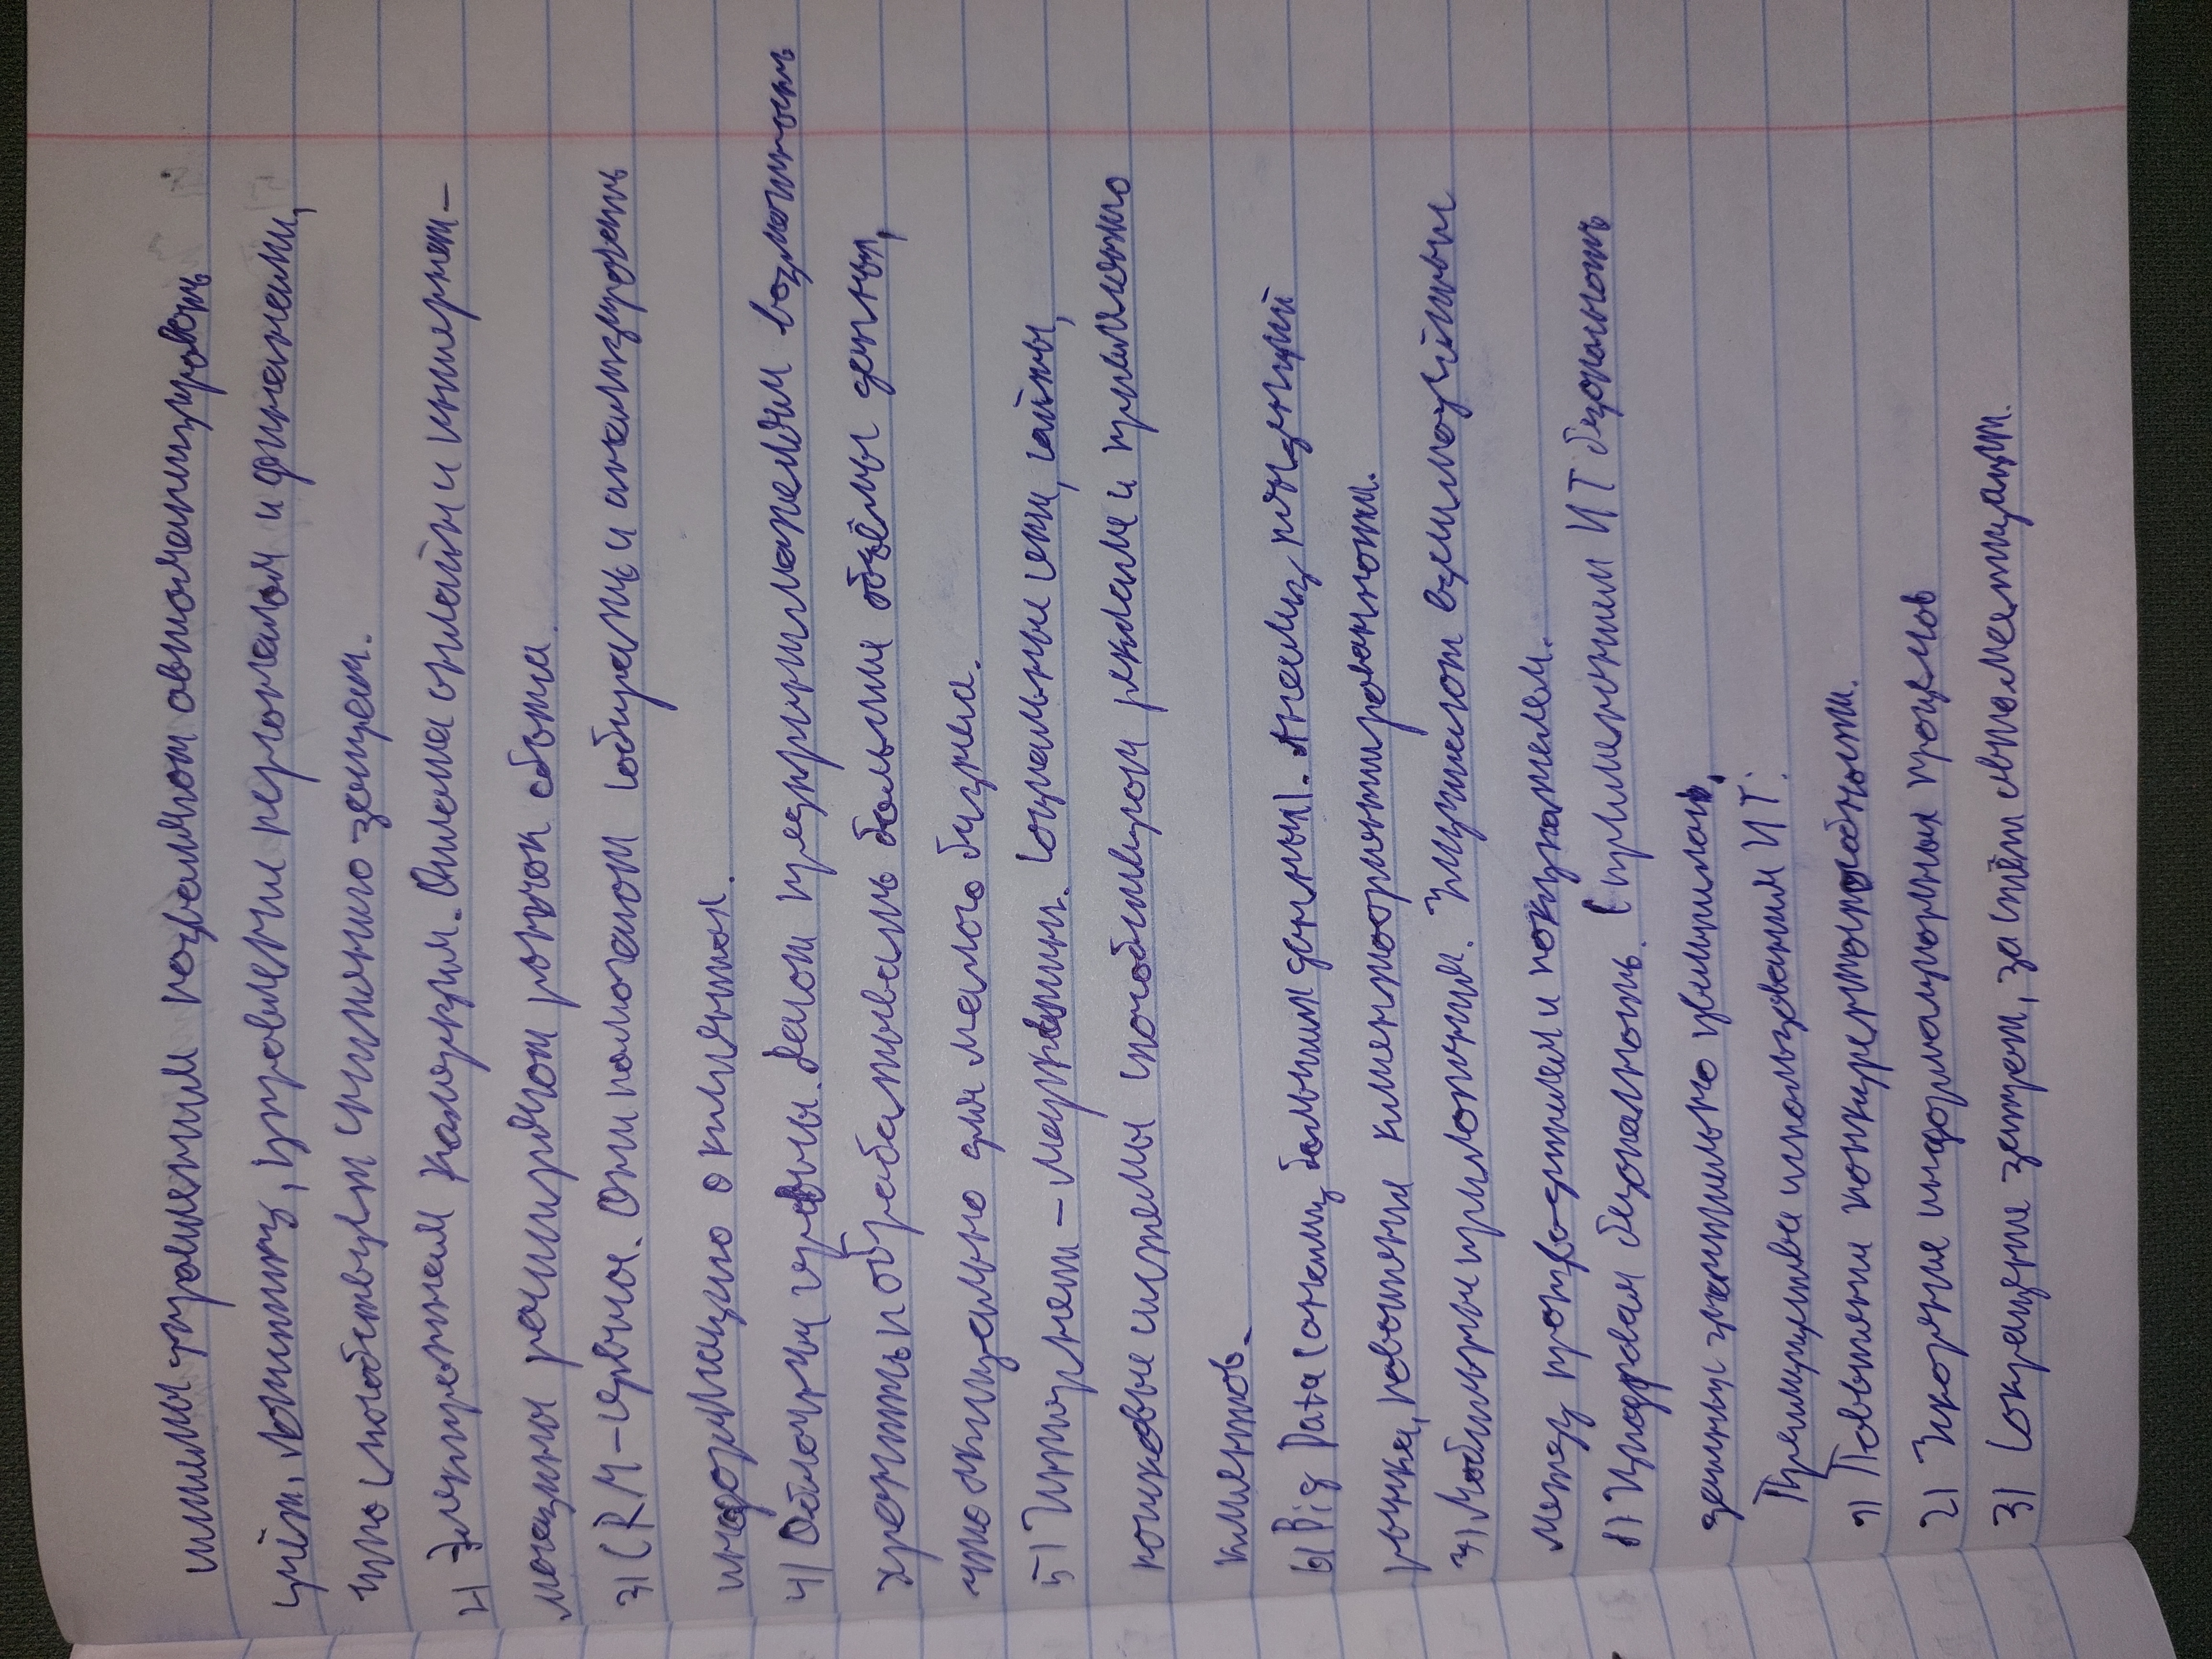 системы управлениям позволяют автоматизировать
учёт, логистику, управление персоналом и финансами,
что способствует снижению затрат.
2) Электронная коммерция. Онлайн и интернет-
магазины расширяют рынок сбыта.
3) CRM-сервисы. Они помогают собирать и анализировать
информацию о клиентах.
4) Облачные сервисы. Дают предпринимателям возможность
хранить и обрабатывать большие объёмы данных,
что особенно для малого бизнеса.
5) Интернет-маркетинг. Социальные сети, сайты,
поисковые системы способствуют рекламе и привлечению
клиентов.
6) Big Data (анализ больших данных). Анализ тенденций
рынка, развитие клиентоориентированности.
7) Мобильные приложения. Улучшают взаимодействие
между производителем и покупателем.
8) Цифровая безопасность. С применением ИТ безопасность
данных значительно увеличилась.
Преимущества использования ИТ:
1) Повышение конкурентоспособности.
2) Ускорение информационных процессов
3) Сокращение затрат, за счёт автоматизации.